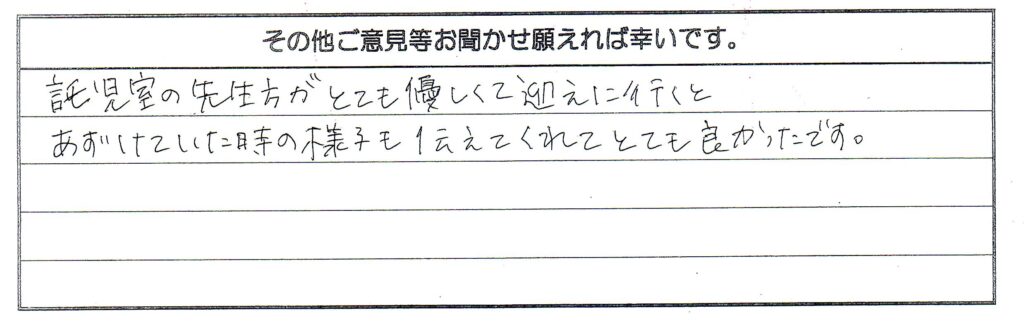 その他ご意見等お聞かせ願えれば幸いです。
託児室の先生方がとても優しくて迎えに行くと
あずけていた時の様子も伝えてくれてとても良かったです。